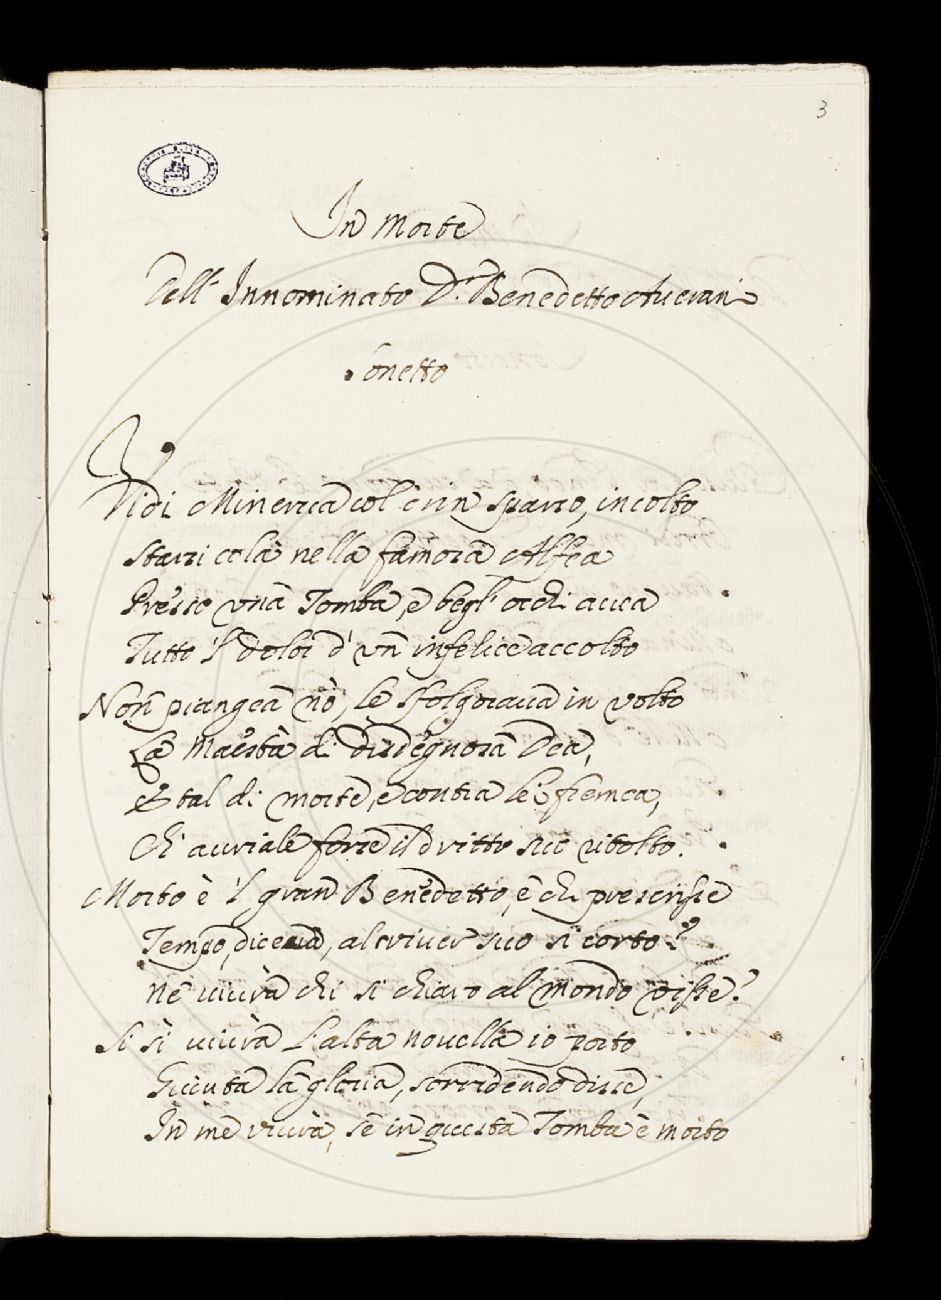 3
In Morte
Dell' Innominato D.r Benedetto Averani
Sonetto
Vidi Minerva col crin sparso, incolto
Starsi colà nella famosa Alfea
Presso una Tomba, e begl' occhi avea
Tutto 'l dolor d' un infelice accolto
Non piangea nò, le sfolgorava in volto
La Maestà di disdegnosa Dea,
E tal di morte, e contra lei fremea,
Ch' avriale forse il dritto suo ritolto.
Morto è 'l gran Benedetto, e chi prescrisse
Tempo, diceva, al viver suo si corto?
Nè vivrà chi si chiaro al mondo visse?
Si sì vivrà L'alta novella io porto
Giunta la gloria, sorridendo disse,
In me vivrà, se in questa Tomba è morto